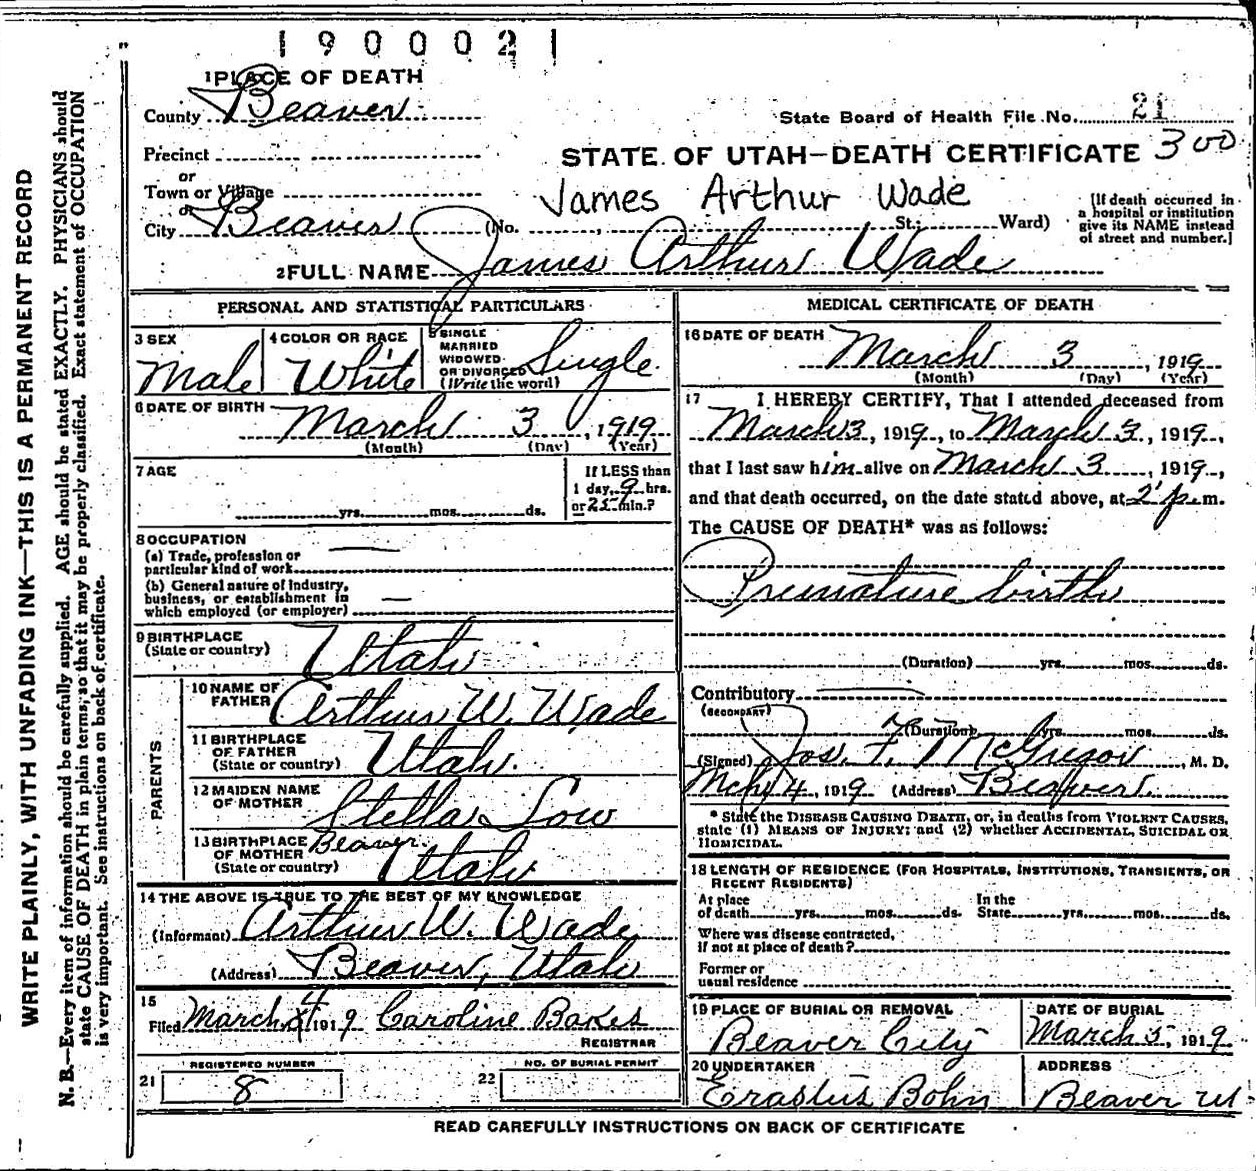 1900021
1 PLACE OF DEATH
County Beaver
State Board of Health File No. 21
Precinct
or
STATE OF UTAH—DEATH CERTIFICATE 300
Town or Village
or
James Arthur Wade
City Beaver (No. , St.; Ward)
[If death occurred in
a hospital or institution
give its NAME instead
of street and number.]
2 FULL NAME James Arthur Wade
PERSONAL AND STATISTICAL PARTICULARS
3 SEX
Male
4 COLOR OR RACE
White
5 SINGLE
MARRIED
WIDOWED
OR DIVORCED
(Write the word)
Single
6 DATE OF BIRTH
March 3, 1919
(Month) (Day) (Year)
7 AGE
yrs. mos. ds.
If LESS than
1 day, 9 hrs.
or 25 min.?
8 OCCUPATION
(a) Trade, profession or
particular kind of work —
(b) General nature of Industry,
business, or establishment in
which employed (or employer) —
9 BIRTHPLACE
(State or country) Utah
PARENTS
10 NAME OF
FATHER Arthur W. Wade
11 BIRTHPLACE
OF FATHER
(State or country) Utah.
12 MAIDEN NAME
OF MOTHER Stella Low
13 BIRTHPLACE
OF MOTHER
(State or country) Beaver. Utah
14 THE ABOVE IS TRUE TO THE BEST OF MY KNOWLEDGE
(Informant) Arthur W. Wade
(Address) Beaver, Utah
15
Filed March 4 1919 Caroline Bakes
REGISTRAR
REGISTERED NUMBER
21 8
NO. OF BURIAL PERMIT
22
MEDICAL CERTIFICATE OF DEATH
16 DATE OF DEATH
March 3, 1919
(Month) (Day) (Year)
17 I HEREBY CERTIFY, That I attended deceased from
March 3, 1919, to March 3, 1919,
that I last saw him alive on March 3, 1919,
and that death occurred, on the date stated above, at 2 p. m.
The CAUSE OF DEATH* was as follows:
Premature birth
(Duration) yrs. mos. ds.
Contributory —
(SECONDARY)
(Duration) yrs. mos. ds.
(Signed) Jos. F. McGregor, M. D.
Mch 4, 1919 (Address) Beaver.
* State the DISEASE CAUSING DEATH, or, in deaths from VIOLENT CAUSES,
state (1) MEANS OF INJURY; and (2) whether ACCIDENTAL, SUICIDAL OR
HOMICIDAL.
18 LENGTH OF RESIDENCE (FOR HOSPITALS, INSTITUTIONS, TRANSIENTS, OR
RECENT RESIDENTS)
At place In the
of death yrs. mos. ds. State yrs. mos. ds.
Where was disease contracted,
if not at place of death?
Former or
usual residence
19 PLACE OF BURIAL OR REMOVAL
Beaver City
DATE OF BURIAL
March 5, 1919
20 UNDERTAKER
Erastus Bohn
ADDRESS
Beaver Ut
READ CAREFULLY INSTRUCTIONS ON BACK OF CERTIFICATE
WRITE PLAINLY, WITH UNFADING INK—THIS IS A PERMANENT RECORD
N. B.—Every item of information should be carefully supplied. AGE should be stated EXACTLY. PHYSICIANS should
state CAUSE OF DEATH in plain terms, so that it may be properly classified. Exact statement of OCCUPATION
is very important. See instructions on back of certificate.